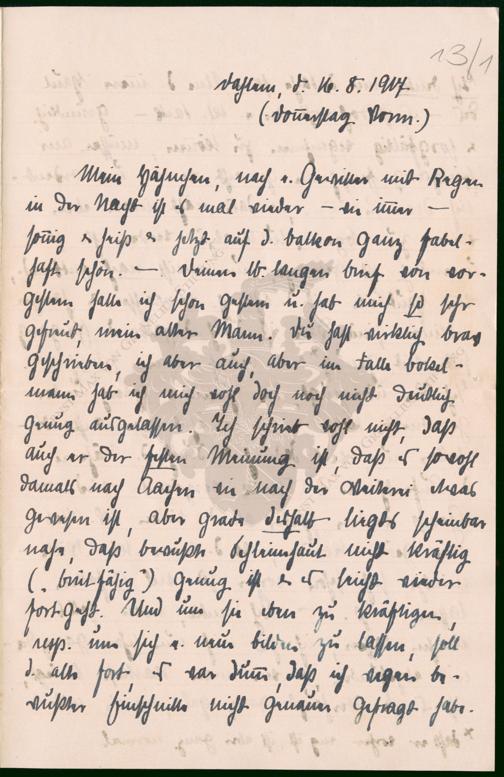 13/1
Dahlem, d. 16. 8. 1917
(Donnerstag Vorm.)
Mein Hähnchen, nach e. Gewitter mit Regen
in der Nacht ist es mal wieder – wie immer –
sonnig & heiß & jetzt auf d. Balkon ganz fabel-
haft schön. – Deinen lb. langen Brief von vor-
gestern hatte ich schon gestern u. hab mich so sehr
gefreut, mein alter Mann. Du hast wirklich brav
geschrieben, ich aber auch, aber im Falle Bokel-
mann hab ich mich wohl doch noch nicht deutlich
genug ausgelassen. Ich schrieb wohl nicht, daß
auch er der festen Meinung ist, daß es sowohl
damals nach Aachen wie nach der Reiterei etwas
gewesen ist, aber grade deshalb liegts scheinbar
nahe, daß bewußte Schleimhaut nicht kräftig
("brutfähig") genug ist & es leicht wieder
fort geht. Und um sie eben zu kräftigen,
resp. um sich e. neue bilden zu lassen, soll
d. alte fort, es war dumm, daß ich wegen be-
wußter Einschnitte nicht genauer gefragt habe.